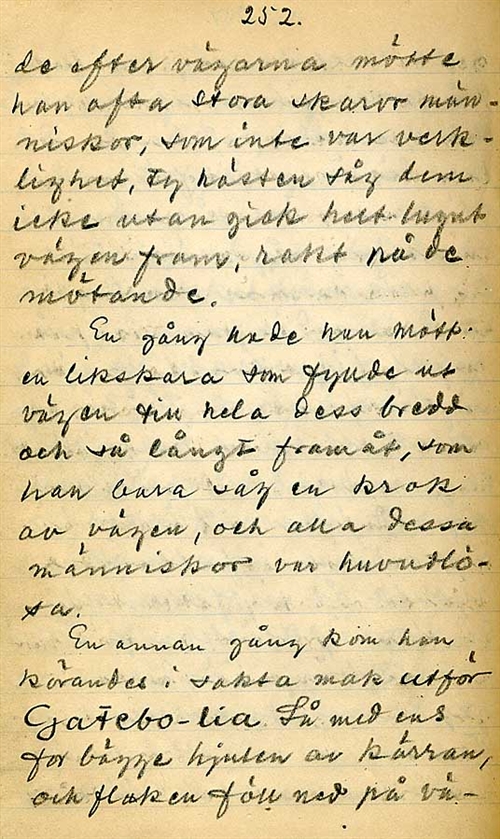 252.
de efter vägarna mötte
han ofta stora skaror män-
niskor, som inte var verk-
lighet, ty hästen såg dem
icke utan gick helt lugnt
vägen fram, rakt på de
mötande.
En gång hade han mött
en likskara som fyllde ut
vägen till hela dess bredd
och så långt framåt, som
han bara såg en krok
av vägen, och alla dessa
människor var huvudlö-
sa.
En annan gång kom han
körandes i sakta mak utför
Gatebo-lia Så med ens
for bägge hjulen av kärran,
och flaken föll ned på vä-